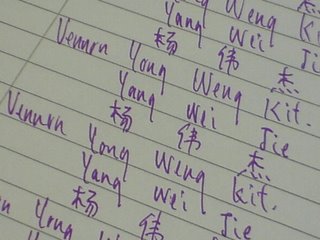 杰
Weng Ki
Yang Wei Jie
杨 伟 杰
Vennrn Yong Weng Kit.
Yang Wei Jie
杨 伟 杰
Vennrn Yong Weng Kit.
Yang Wei Jie
杨 伟
Yong Weng